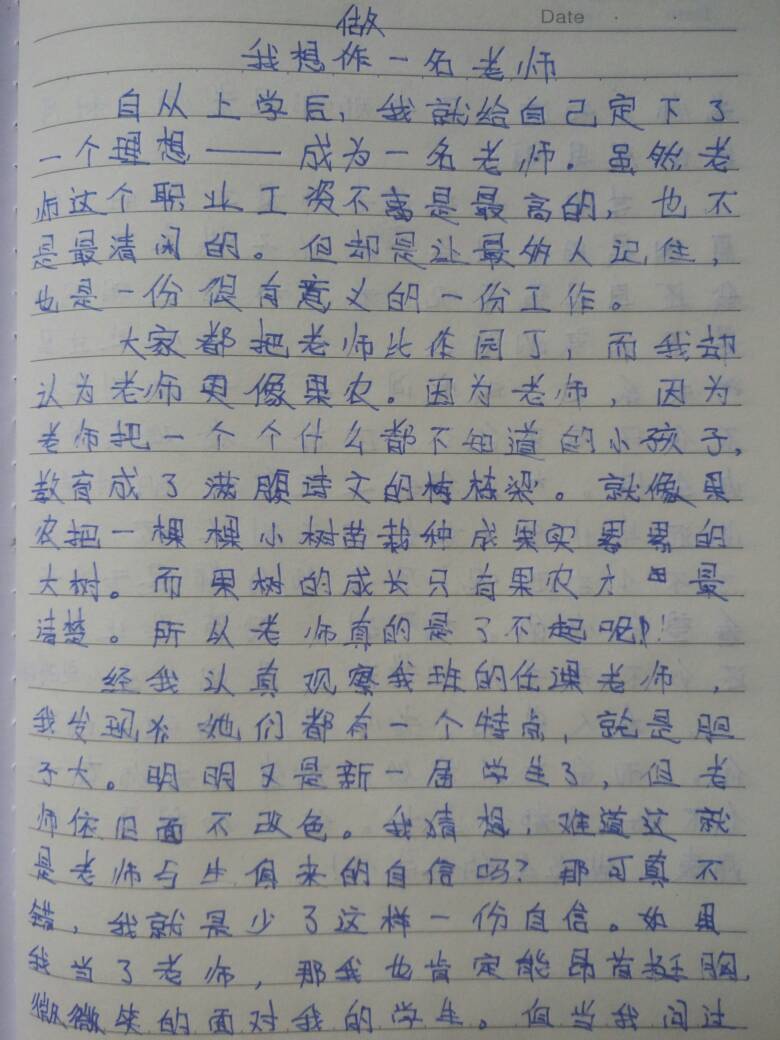 Date
做
我想作一名老师
自从上学后，我就给自己定下了
一个理想——成为一名老师。虽然老
师这个职业工资不离是最高的，也不
是最清闲的。但却是让最多人记住，
也是一份很有意义的一份工作。
大家都把老师比作园丁，而我却
认为老师更像果农。因为老师，因为
老师把一个个什么都不知道的小孩子，
教育成了满腹诗文的栋梁。就像果
农把一棵棵小树苗栽种成果实累累的
大树。而果树的成长只有果农才最
清楚。所以老师真的是了不起呢！
经我认真观察我班的任课老师，
我发现她们都有一个特点，就是胆
子大。明明又是新一届学生了，但老
师依旧面不改色。我猜想，难道这就
是老师与生俱来的自信吗？那可真不
错，我就是少了这样一份自信。如果
我当了老师，那我也肯定能昂首挺胸，
微微笑的面对我的学生。但当我问过